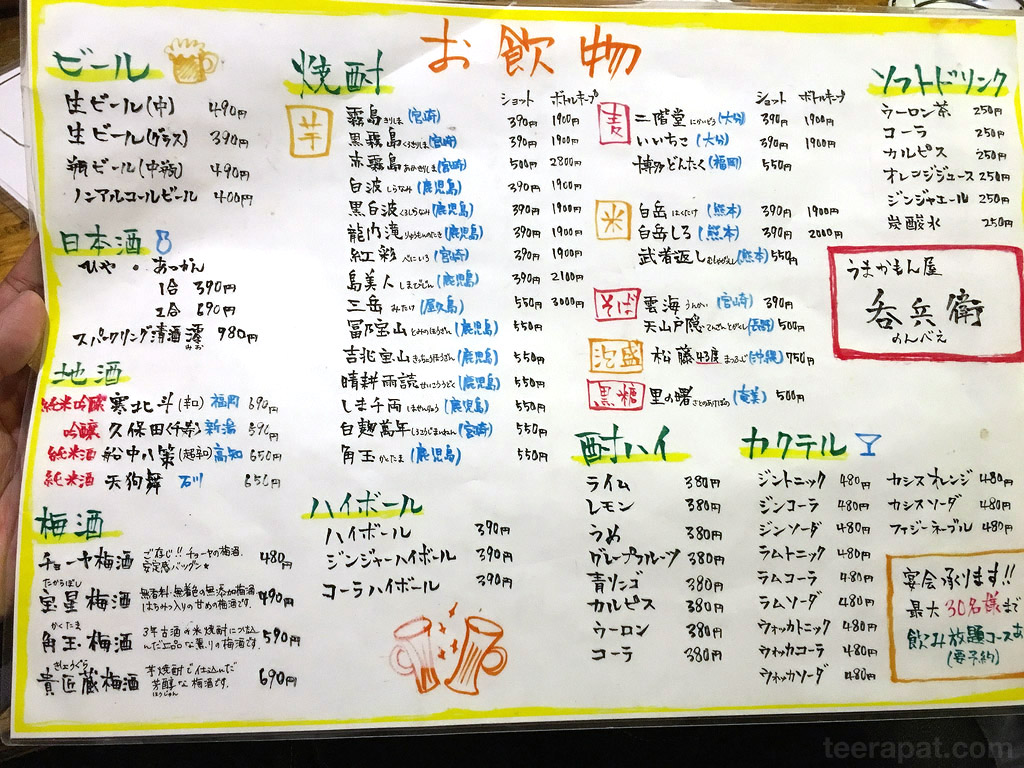 お飲物
ビール
生ビール(中) 490円
生ビール(グラス) 390円
瓶ビール(中瓶) 490円
ノンアルコールビール 400円
日本酒
ひや・あつかん
1合 390円
2合 690円
スパークリング清酒 澪 980円
みお
地酒
純米吟醸 寒北斗(辛口) 福岡 690円
吟醸 久保田(千寿) 新潟 590円
純米酒 船中八策(超辛口) 高知 650円
純米酒 天狗舞 石川 650円
梅酒
チョーヤ梅酒 ごぞんじ!!チョーヤの梅酒. 480円
安定感バツグン★
たからぼし
宝星梅酒 無香料・無着色の無添加梅酒 490円
はちみつ入りの甘めの梅酒です.
かくたま
角玉・梅酒 3年古酒の米焼酎につけ込 590円
んだ上品な薫りの梅酒です.
きしょうぐら
貴匠蔵梅酒 芋焼酎で仕込んだ 690円
芳醇な梅酒です.
ほうじゅん
焼酎
ショット ボトルキープ
芋
霧島 きりしま (宮崎) 390円 1900円
黒霧島 くろきりしま (宮崎) 390円 1900円
赤霧島 あかきりしま (宮崎) 500円 2800円
白波 しらなみ (鹿児島) 390円 1900円
黒白波 くろしらなみ (鹿児島) 390円 1900円
龍門滝 りゅうもんだき (鹿児島) 390円 1900円
紅彩 べにいろ (宮崎) 390円 1900円
島美人 しまびじん (鹿児島) 390円 2100円
三岳 みたけ (屋久島) 550円 3000円
冨乃宝山 とみのほうざん (鹿児島) 550円
吉兆宝山 きっちょうほうざん (鹿児島) 550円
晴耕雨読 せいこううどく (鹿児島) 550円
しま千両 しませんりょう (鹿児島) 550円
白麹萬年 しろこうじまんねん (宮崎) 550円
角玉 かくたま (鹿児島) 550円
ショット ボトルキープ
麦
二階堂 にかいどう (大分) 390円 1900円
いいちこ (大分) 390円 1900円
博多どんたく (福岡) 550円
米
白岳 はくたけ (熊本) 390円 1900円
白岳しろ (熊本) 390円 2000円
武者返し むしゃがえし (熊本) 550円
そば
雲海 うんかい (宮崎) 390円
天山戸隠 てんざんとがくし (長野) 500円
泡盛
松藤43度 まつふじ (沖縄) 750円
黒糖
里の曙 さとのあけぼの (奄美) 500円
ハイボール
ハイボール 390円
ジンジャーハイボール 390円
コーラハイボール 390円
酎ハイ
ライム 380円
レモン 380円
うめ 380円
グレープフルーツ 380円
青リンゴ 380円
カルピス 380円
ウーロン 380円
コーラ 380円
カクテル
ジントニック 480円
ジンコーラ 480円
ジンソーダ 480円
ラムトニック 480円
ラムコーラ 480円
ラムソーダ 480円
ウォッカトニック 480円
ウォッカコーラ 480円
ウォッカソーダ 480円
カシスオレンジ 480円
カシスソーダ 480円
ファジーネーブル 480円
ソフトドリンク
ウーロン茶 250円
コーラ 250円
カルピス 250円
オレンジジュース 250円
ジンジャエール 250円
炭酸水 250円
うまかもん屋
呑兵衛
のんべえ
宴会承ります!!
最大30名様まで
飲み放題コースあ
(要予約)
teerapat.com